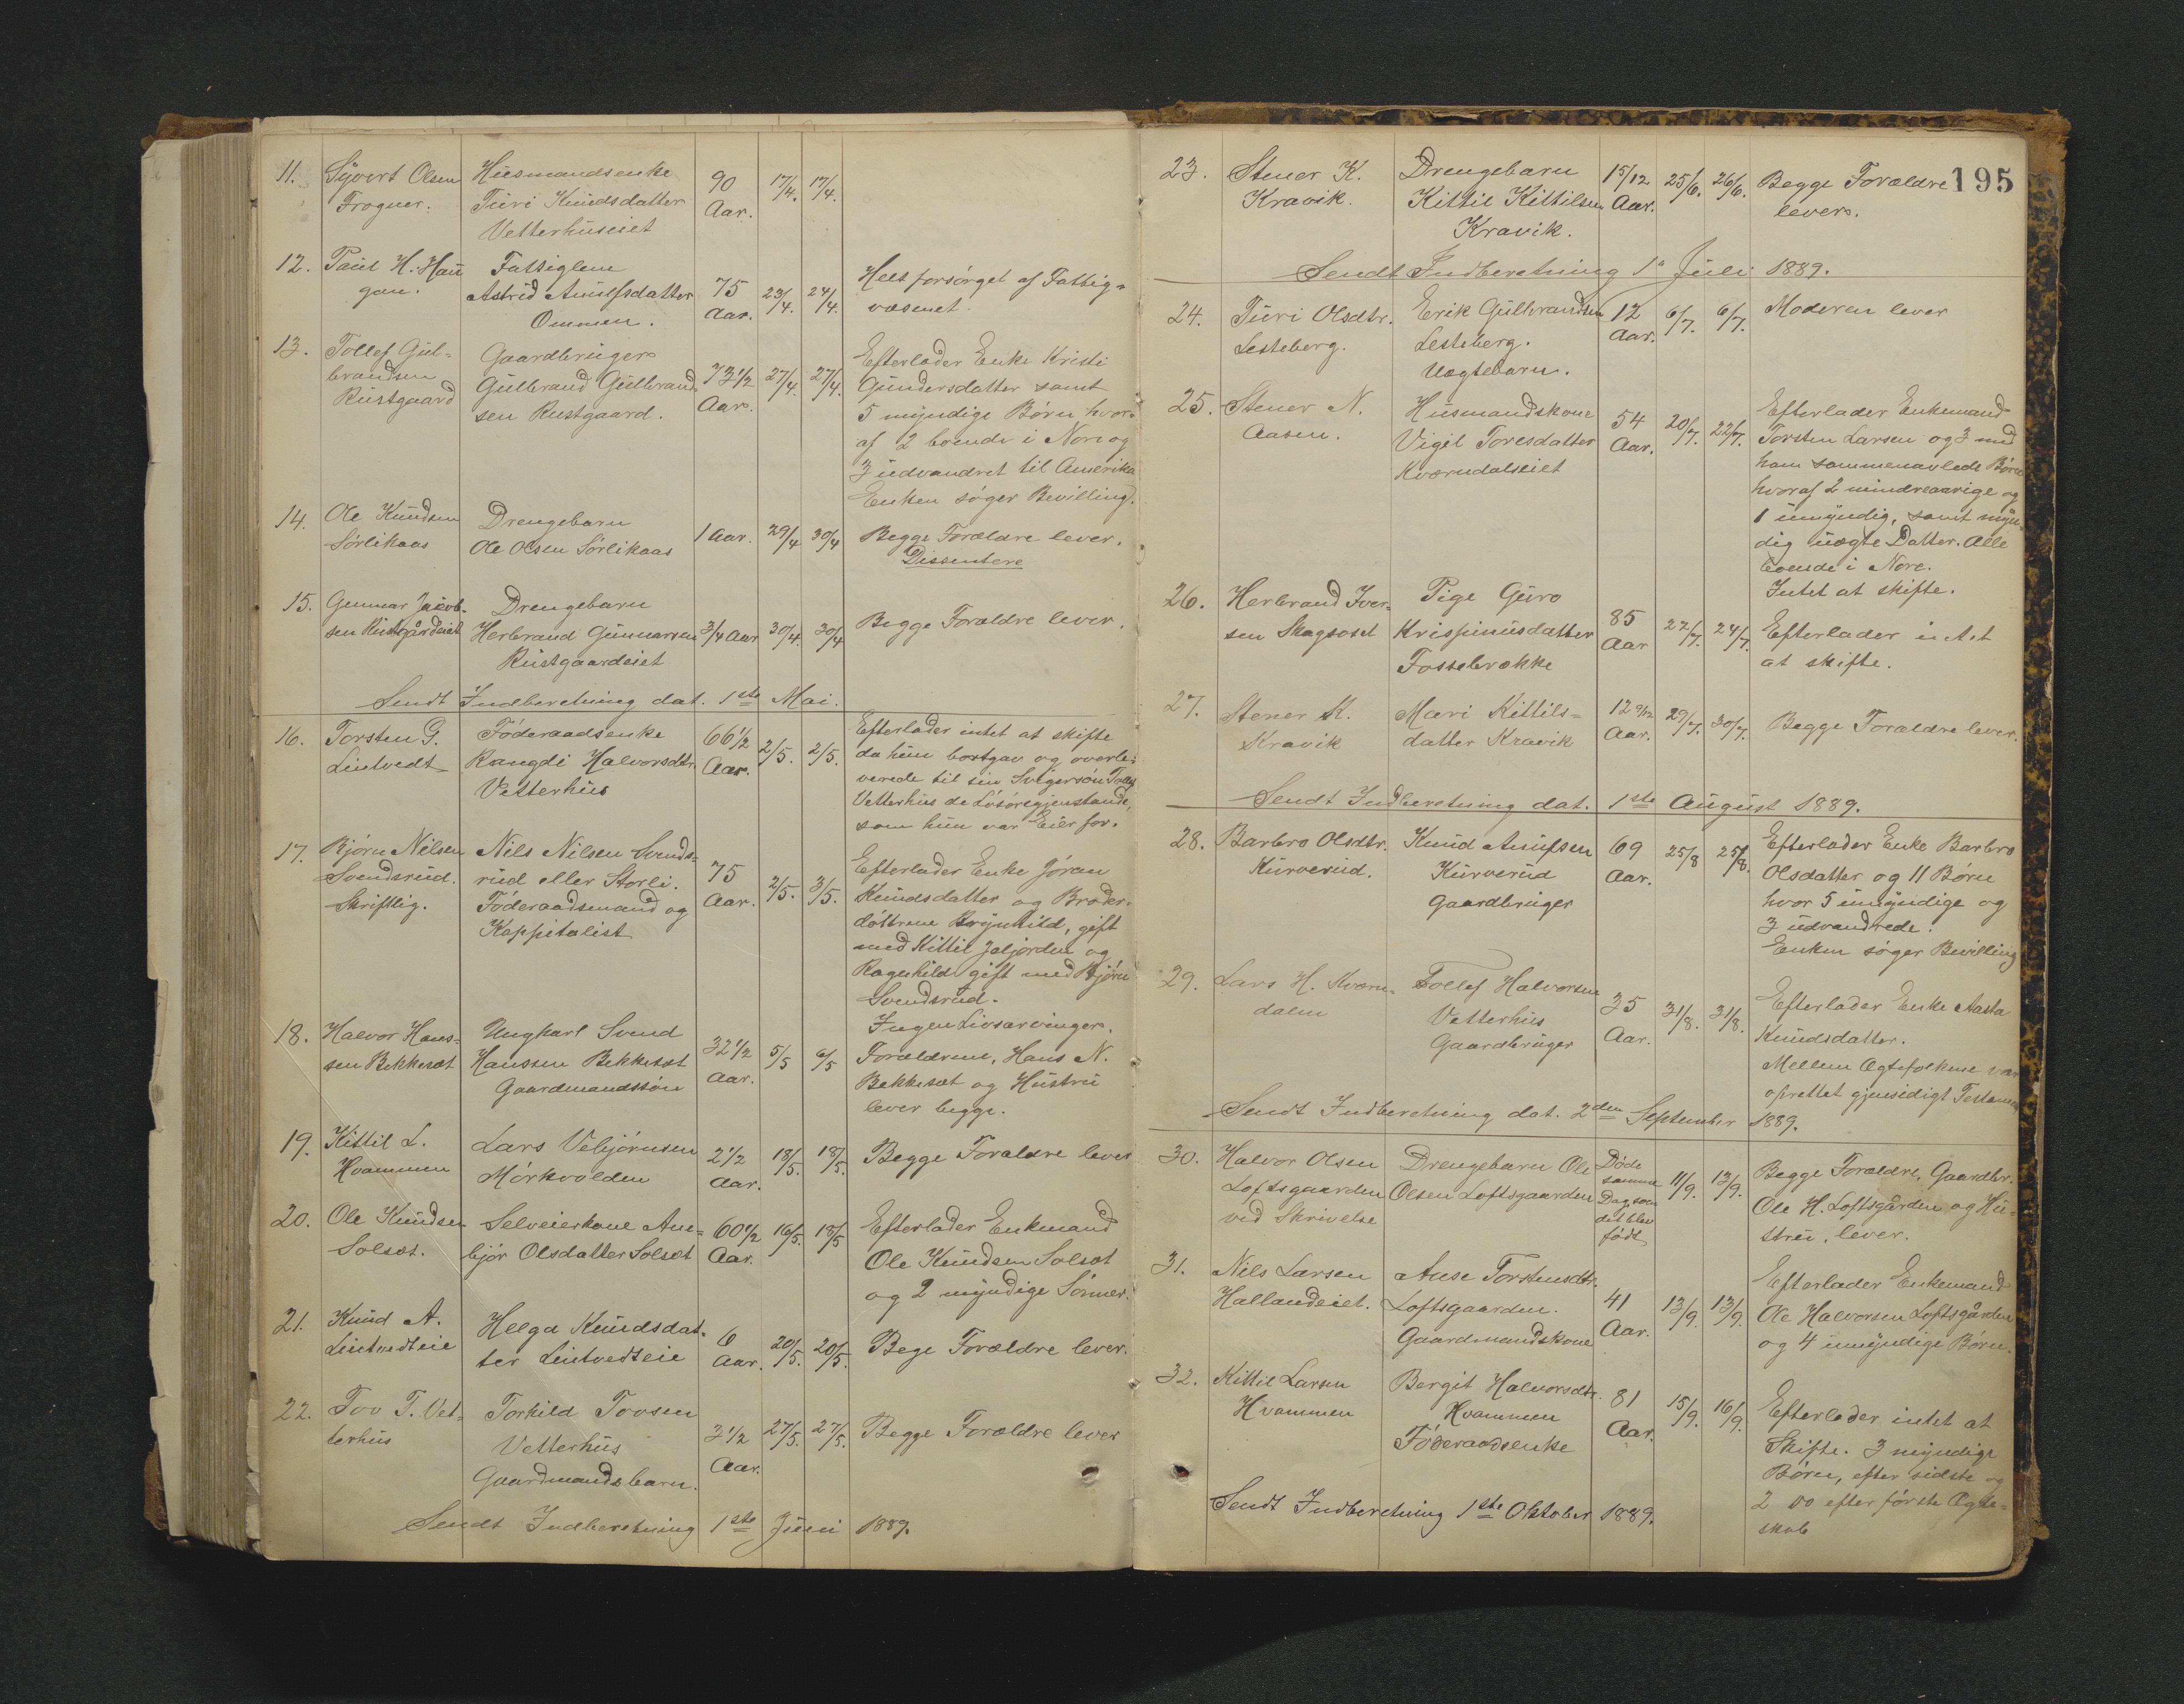 11. Syvert Olsen Husmandsenke 90 17/4. 17/4.
Frogner. Turi Knudsdatter Aar.
Vetterhuseiet
12. Paul H. Hau Fattiglem Helt forsørget af Fattig-
gan. Astrid Anulfsdatter 75 23/4. 24/4. væsenet.
Ommen. Aar.
13. Tollef Gul- Gaardbruger Efterlader Enke Kristi
brandsen Gulbrand Gulbrand 73 1/2 27/4. 27/4. Gundersdatter samt
Rustgaard sen Rustgaard. Aar. 5 myndige Børn hvor-
af 2 boende i Nore og
3 udvandret til Amerika
Enken søger Bevilling.
14. Ole Knudsen Drengebarn 1 Aar. 29/4 30/4 Begge Forældre lever.
Sørlikaas Ole Olsen Sørlikaas Dissentere
15. Gunnar Jacob- Drengebarn
sen Rustgårdeiet Herbrand Gunnarsen 3/4 Aar 30/4. 30/4 Begge Forældre lever.
Rustgaardeiet
Sendt Indberetning dat. 1ste Mai.
16. Torsten G. Föderaadsenke 66 1/2 2/5. 2/5. Efterlader intet at skifte
Lintvedt Rangdi Halvorsdtr. Aar. da hun bortgav og overle-
Vetterhus verede til sin Svigersøn Tollef
Vetterhus de Løsøregjenstande,
som hun var Eier for.
17. Bjørn Nilsen Nils Nilsen Svends- 75 2/5. 3/5. Efterlader Enke Jöran
Svendsrud. rud eller Storli. Aar. Knudsdatter og Broder-
Skriftlig. Föderaadsmand og döttrene Brynhild, gift
Kappitalist med Kittil Jaljorden og
Ragnhild gift med Bjørn
Svendsrud.
Ingen Livsarvinger.
18. Halvor Hans- Ungkarl Svend 32 1/2 5/5 6/5 Forældrene, Hans N.
sen Bekkesæt Hanssen Bekkesæt Aar. Bekkesæt og Hustru
Gaardmandssön lever begge.
19. Kittil L. Lars Vebjörnsen 2 1/2 18/5. 18/5. Begge Forældre lever
Hvammen Mörkvolden Aar.
20. Ole Knudsen Selveierkone An- 60 1/2 16/5. 18/5 Efterlader Enkmand
Solsæt. björ Olsdatter Solsæt Aar. Ole Knudsen Solsæt
og 2 myndige Sönner.
21. Knud A. Helga Knudsdat- 6 20/5. 20/5. Bege Forældre lever.
Lintvedteie ter Lintvedteie Aar.
22. Tov T. Vet- Torkild Tovsen 3 1/2 27/5. 27/5. Begge Forældre lever
terhus Vetterhus Aar.
Gaardmandsbarn.
Sendt Indberetning 1ste Juni 1889.
195
23. Stener K. Drengebarn 15/12 25/6. 26/6. Begge Forældre
Kravik. Kittil Kittilsen Aar. lever.
Kravik.
Sendt Indberetning 1s Juli 1889.
24. Turi Olsdtr. Erik Gulbrandsen 12 6/7. 6/7. Moderen lever
Lesteberg. Lesteberg. Aar.
Uægtebarn.
25. Stener N. Husmandskone 54 20/7. 22/7. Efterlader Enkemand
Aasen. Vigil Toresdatter Aar. Torsten Larsen og 3 med
Kværndalseiet ham sammenavlede Børn
hvoraf 2 mindreaarige og
1 umyndig, samt myn-
dig uægte Datter. Alle
boende i Nore.
Intet at skifte.
26. Herbrand Iver- Pige Guro 85 22/7. 24/7. Efterlader intet
sen Skagsoset Krispinusdatter Aar at skifte.
Fossebrække
27. Stener K. Mari Kittils- 12 9/12 29/7. 30/7. Begge Forældre lever.
Kravik datter Kravik Aar.
Sendt Indberetning dat. 1ste August 1889.
28. Barbro Olsdtr. Knud Anufsen 69 25/8 25/8. Efterlader Enke Barbro
Kurverud. Kurverud Aar. Olsdatter og 11 Børn
Gaardbruger hvor 5 umyndige og
3 udvandrede.
Enken søger Bevilling
29. Lars H. Kværn- Tollef Halvorsen 35 31/8. 31/8. Efterlader Enke Aasta
dalen Vetterhus Aar. Knudsdatter.
Gaardbruger Mellem Ægtefolkene var
oprettet gjensidigt Testamen
Sendt Indberetning dat. 2den September 1889.
30. Halvor Olsen Drengebarn Ole Døde 11/9. 13/9. Begge Forældre, Gaardbr.
Loftsgaarden Olsen Loftsgaarden samme Ole H. Loftsgården og Hu-
ved Skrivelse Dag som stru, lever.
det blev
født
31. Nils Larsen Anse Torstensdtr. 41 13/9. 13/9. Efterlader Enkemand
Hallandeiet. Loftsgaarden. Aar. Ole Halvorsen Loftsgården
Gaardmandskone og 4 umyndige Børn.
32. Kittil Larsen Bergit Halvorsdtr. 81 15/9. 16/9. Efterlader intet at
Hvammen Hvammen Aar. Skifte. 3 myndige
Föderaadsenke Børn, efter sidste og
2 do efter første Ægte-
skab
Sendt Indberetning 1ste Oktober 1889.